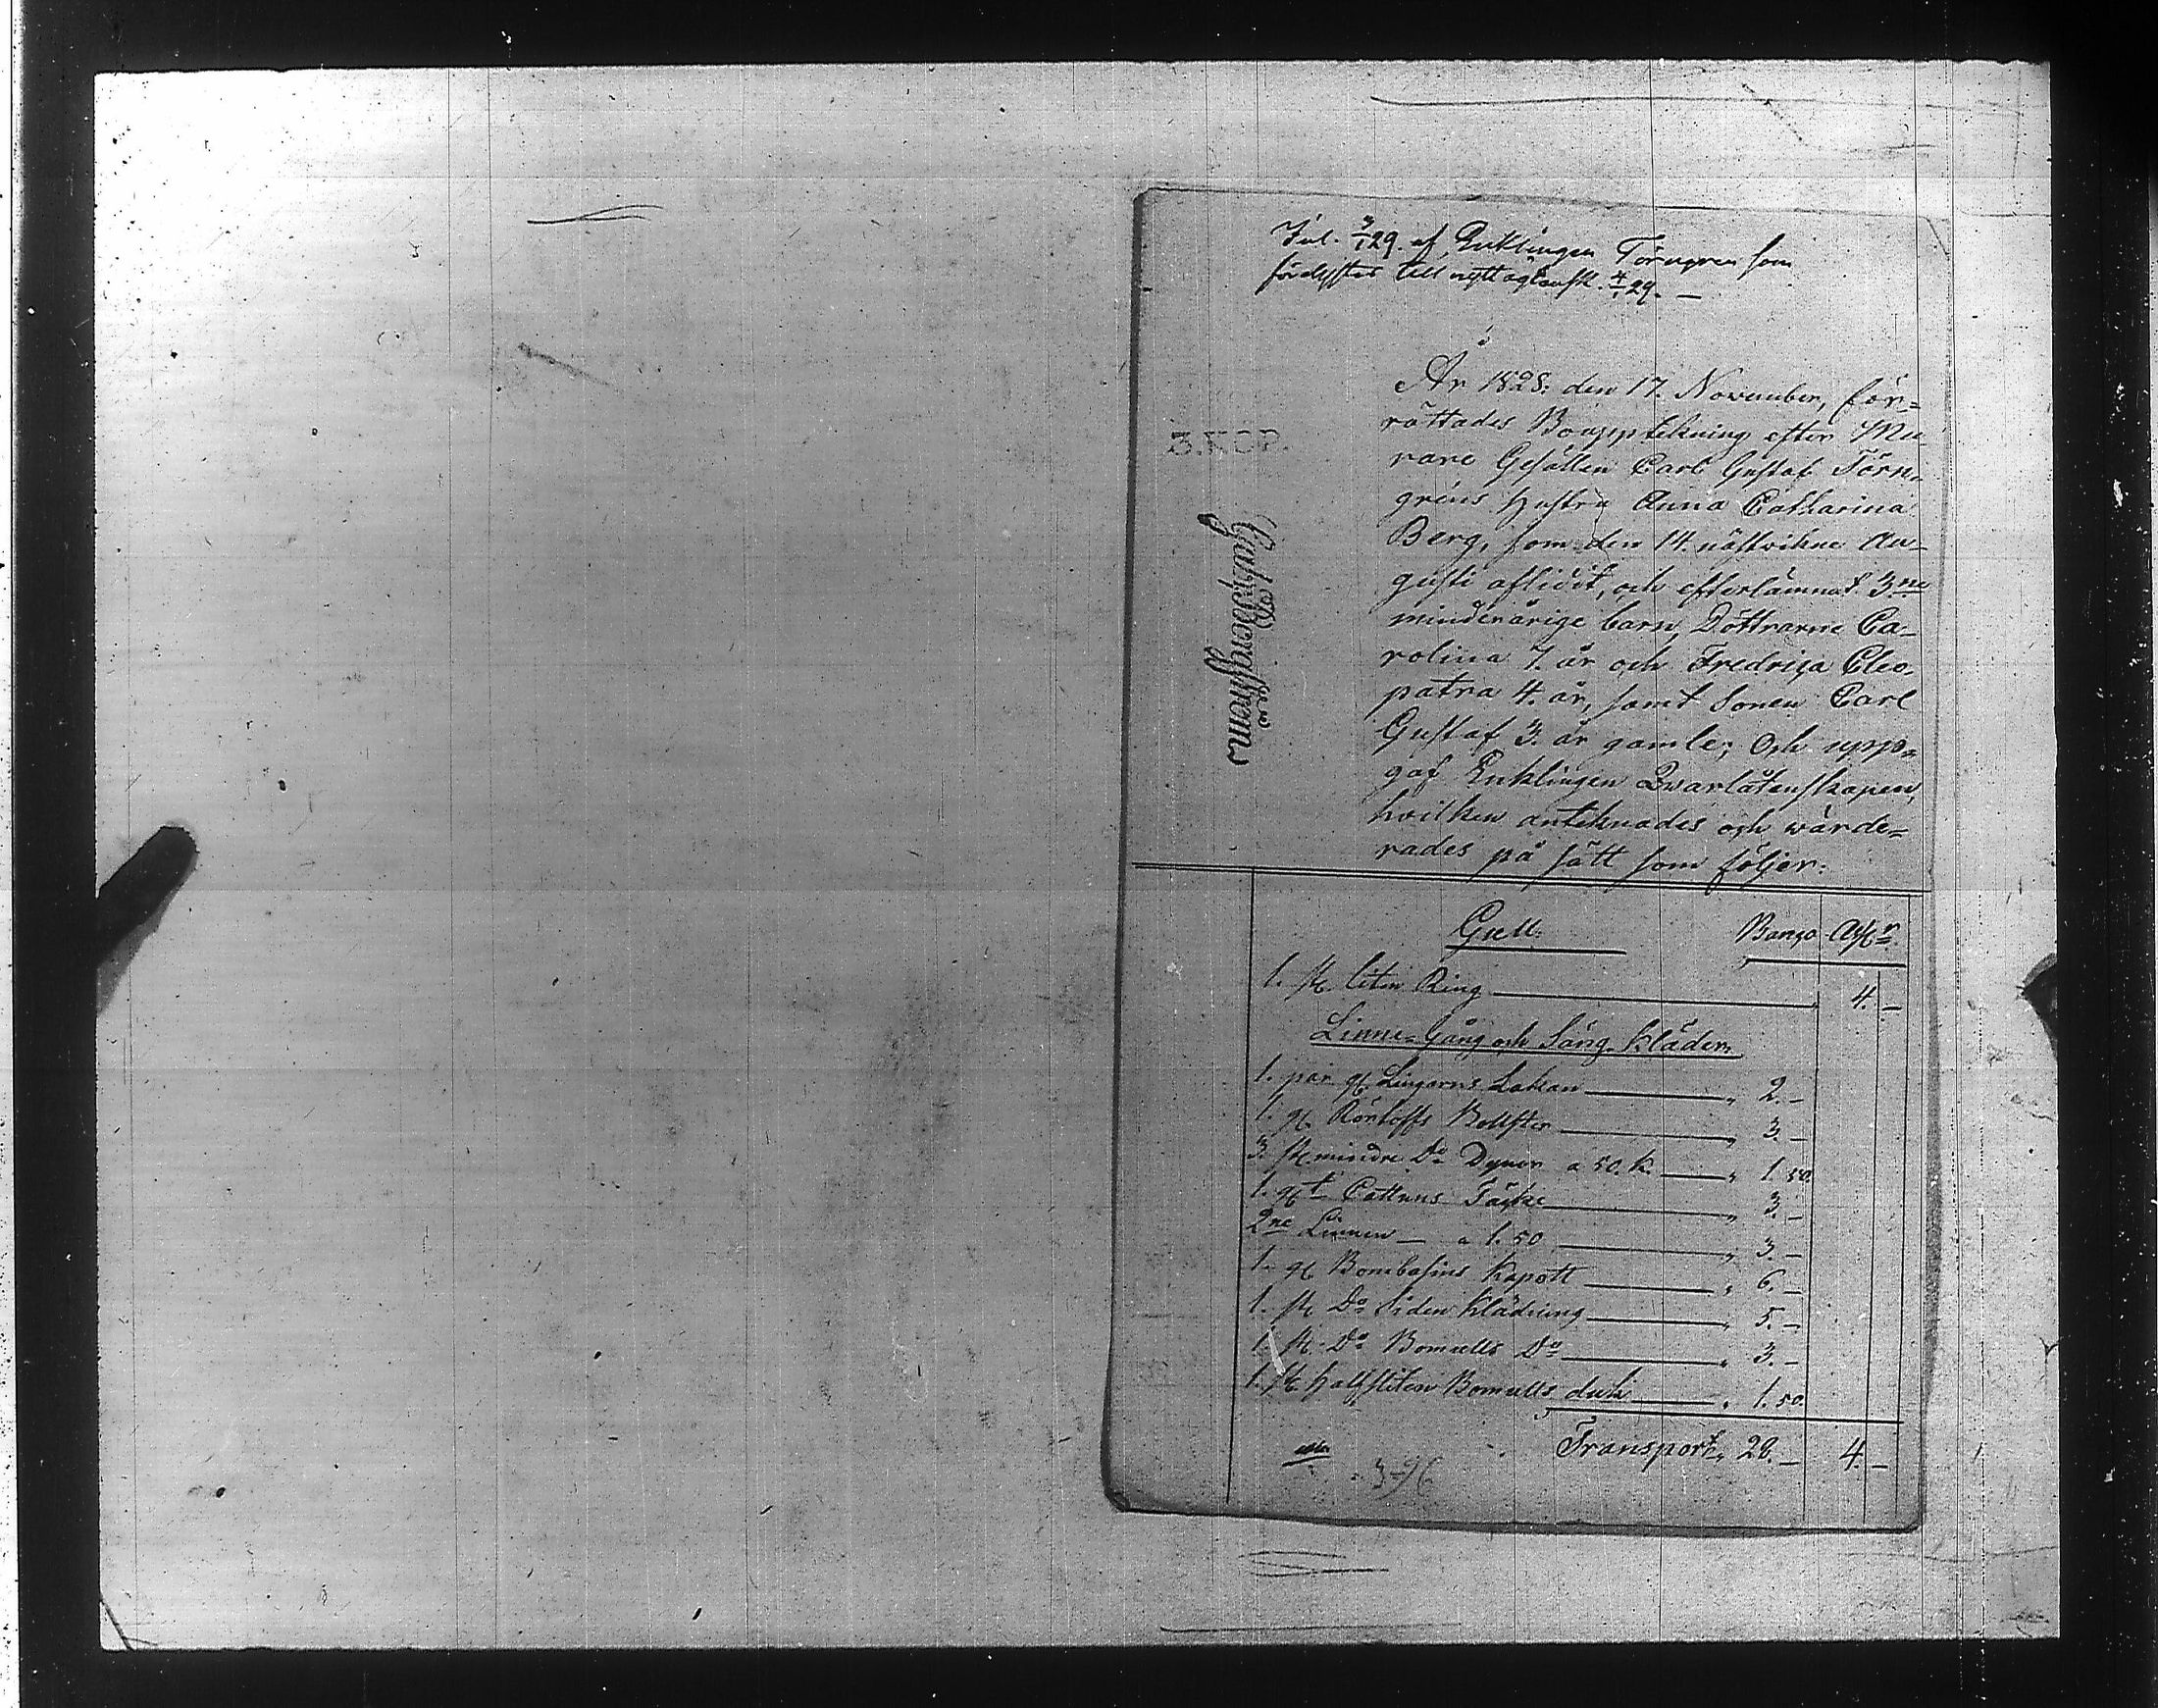 Inl. 3/1 29. af Enklingen Törngren som
förelystes till nytt ägtensk. 4/1 29. —
År 1828. den 17. November, för=
rättades Bouppteckning efter Mu
rare Gesällen Carl Gustaf Törn,
gréns Hustru Anna Catharina
Berg, som den 14. nästvikne Au-
gusti aflidit, och efterlämnat 3ne
minderårige barn, Döttrarne Ca-
rolina 7. år och Fredrica Cleo-
patra 4. år, samt Sonen Carl
Gustaf 3. år gamle; Och upp=
gaf Enklingen Qvarlåtenskapen,
hvilken anteknades och värde=
rades på sätt som följer:
Gull. Banco Assr.
1. st. liten Ring — 4. —
Linne= Gång och Säng-Kläder.
1. par gl. Lingarns Lakan — „ 2. —
1. gl. Bollster — „ 3. —
3. st. mindre Do Dynor a 50. k. — „ 1. 50.
1. glt Cattuns Täcke — „ 3. —
2ne Linnen — a 1. 50 — „ 3. —
1. gl. Bombasins Kapott — „ 6. —
1. st. Do Siden Klädning — „ 5. —
1. st. Do Bomulls Do — „ 3. —
1. st. halfsliten Bomulls duk — „ 1. 50.
Transport „ 28. — 4. —